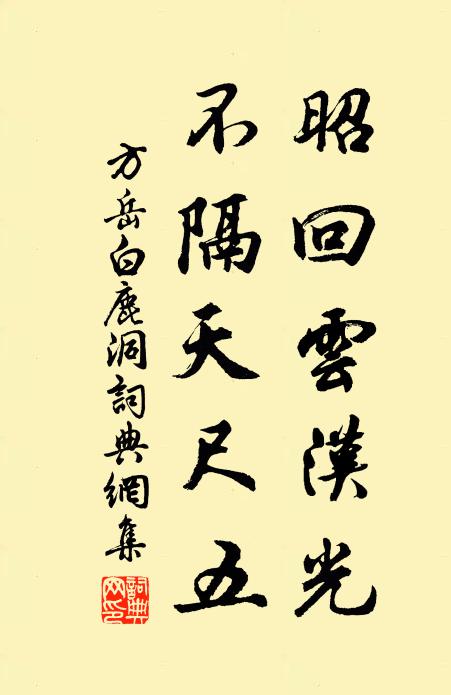 昭回雲漢光
不隔天尺五
方岳白鹿洞詞典網集
詞典网印